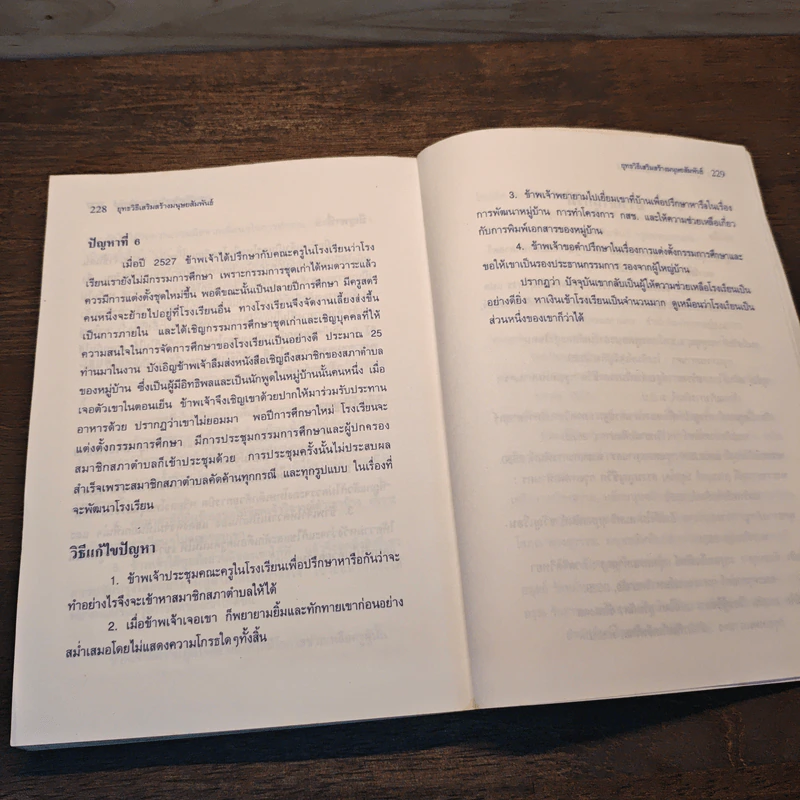 228 ยุทธวิธีเสริมสร้างมนุษยสัมพันธ์
ปัญหาที่ 6
เมื่อปี 2527 ข้าพเจ้าได้ปรึกษากับคณะครูในโรงเรียนว่าโรง
เรียนเรายังไม่มีกรรมการศึกษา เพราะกรรมการชุดเก่าได้หมดวาระแล้ว
ควรมีการแต่งตั้งชุดใหม่ขึ้น พอดีขณะนั้นเป็นปลายปีการศึกษา มีครูสตรี
คนหนึ่งจะย้ายไปอยู่ที่โรงเรียนอื่น ทางโรงเรียนจึงจัดงานเลี้ยงส่งขึ้น
เป็นการภายใน และได้เชิญกรรมการศึกษาชุดเก่าและเชิญบุคคลที่ให้
ความสนใจในการจัดการศึกษาของโรงเรียนเป็นอย่างดี ประมาณ 25
ท่านมาในงาน บังเอิญข้าพเจ้าลืมส่งหนังสือเชิญถึงสมาชิกของสภาตำบล
ของหมู่บ้าน ซึ่งเป็นผู้มีอิทธิพลและเป็นนักพูดในหมู่บ้านนั้นคนหนึ่ง เมื่อ
เจอตัวเขาในตอนเย็น ข้าพเจ้าจึงเชิญเขาด้วยปากให้มาร่วมรับประทาน
อาหารด้วย ปรากฏว่าเขาไม่ยอมมา พอปีการศึกษาใหม่ โรงเรียนจะ
แต่งตั้งกรรมการศึกษา มีการประชุมกรรมการศึกษาและผู้ปกครอง
สมาชิกสภาตำบลก็เข้าประชุมด้วย การประชุมครั้งนั้นไม่ประสบผล
สำเร็จเพราะสมาชิกสภาตำบลคัดค้านทุกกรณี และทุกรูปแบบ ในเรื่องที่
จะพัฒนาโรงเรียน
วิธีแก้ไขปัญหา
1. ข้าพเจ้าประชุมคณะครูในโรงเรียนเพื่อปรึกษาหารือกันว่าจะ
ทำอย่างไรจึงจะเข้าหาสมาชิกสภาตำบลให้ได้
2. เมื่อข้าพเจ้าเจอเขา ก็พยายามยิ้มและทักทายเขาก่อนอย่าง
สม่ำเสมอโดยไม่แสดงความโกรธใดๆทั้งสิ้น
ยุทธวิธีเสริมสร้างมนุษยสัมพันธ์ 229
3. ข้าพเจ้าพยายามไปเยี่ยมเขาที่บ้านเพื่อปรึกษาหารือในเรื่อง
การพัฒนาหมู่บ้าน การทำโครงการ กสช. และให้ความช่วยเหลือเกี่ยว
กับการพิมพ์เอกสารของหมู่บ้าน
4. ข้าพเจ้าขอคำปรึกษาในเรื่องการแต่งตั้งกรรมการศึกษาและ
ขอให้เขาเป็นรองประธานกรรมการ รองจากผู้ใหญ่บ้าน
ปรากฏว่า ปัจจุบันเขากลับเป็นผู้ให้ความช่วยเหลือโรงเรียนเป็น
อย่างดียิ่ง หาเงินเข้าโรงเรียนเป็นจำนวนมาก ดูเหมือนว่าโรงเรียนเป็น
ส่วนหนึ่งของเขาก็ว่าได้